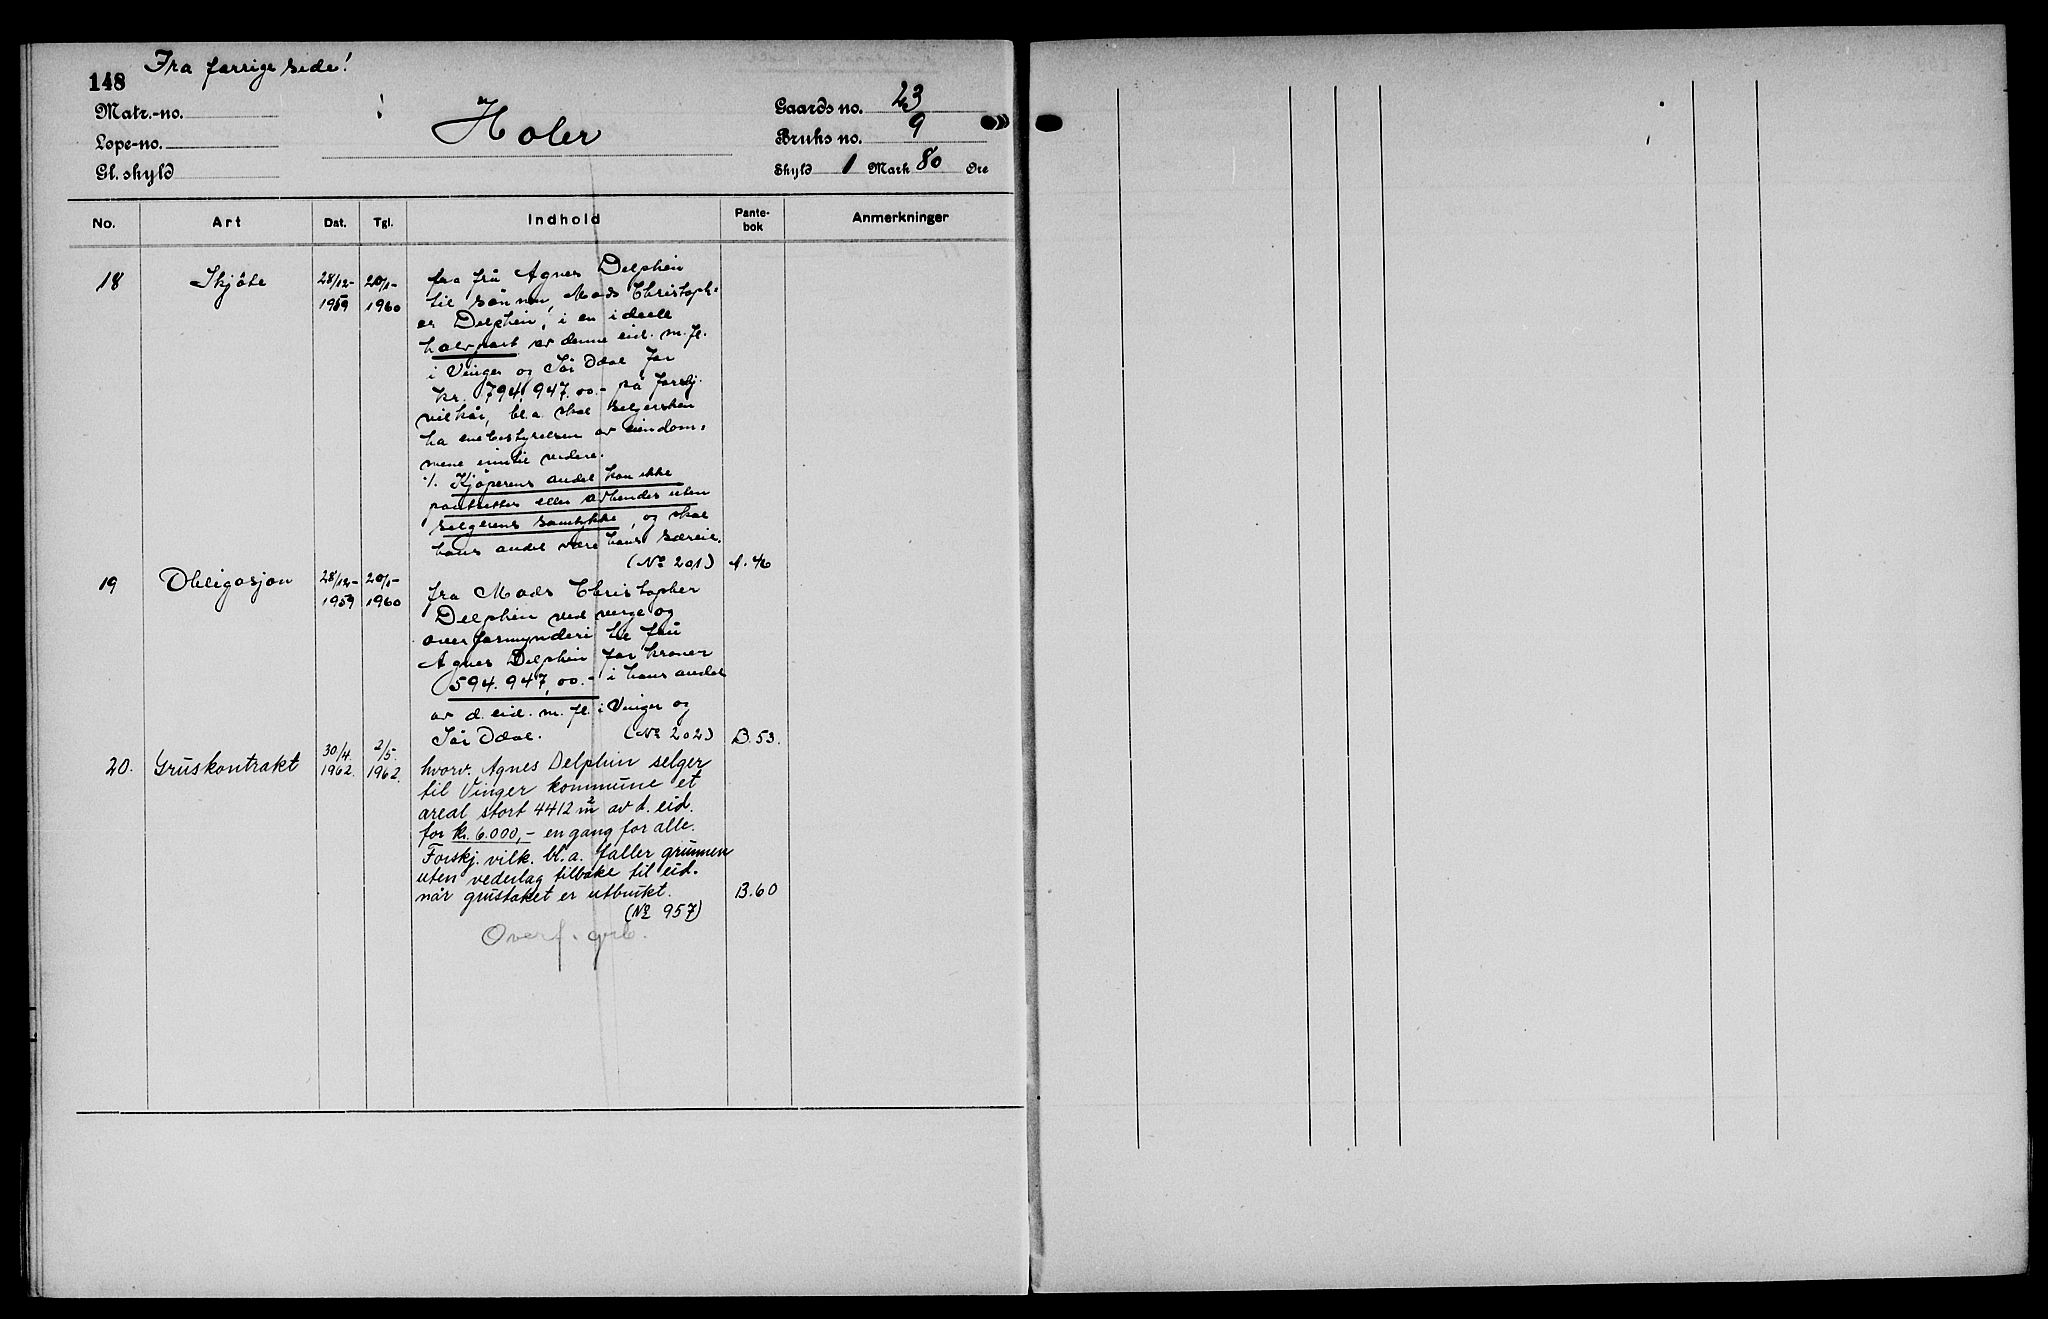 148 Fra forrige side!
Matr.-no.
Løpe-no.
Gl. skyld
Holer
Gaards no. 23
Bruks no. 9
Skyld 1 Mark 80 Øre
No. Art Dat. Tgl. Indhold Pante-bok Anmerkninger
18 Skjöte 28/12- 1959 20/1- 1960 fra frü Agnes Delphin
til sönnen, Mads Christoph-
er Delphin, i en ideell
halvpart av denne eid. m. fl.
i Vinger og Sör Odal for
kr. 794.947.00.- på forskj.
vilkår, bl.a. skal selgersken
ha enebestyrelsen av eiendom-
mene inntil videre.
·/. Kjöperens andel kan ikke
pantsettes eller avhendes uten
selgerens samtykke, og skal
hans andel være hans særeie.
(No 201) A. 46
19 Obligasjon 28/12- 1959 20/1- 1960 fra Mads Christopher
Delphin ved verge og
overformynderi til frü
Agnes Delphin for kroner
594.947,00.- i hans andel
av d. eid. m. fl. i Vinger og
Sör Odal. (No 202) B. 53.
20. Grüskontrakt 30/4. 1962. 2/5. 1962. hvorv. Agnes Delphin selger
til Vinger kommüne et
areal stort 4412 m2 av d. eid.
for kr. 6.000,- en gang for alle.
Forskj. vilk. bl. a. faller grünnen
uten vederlag tilbake til eid.
når grüstaket er utbrukt. B. 60
(No 957)
Overf.